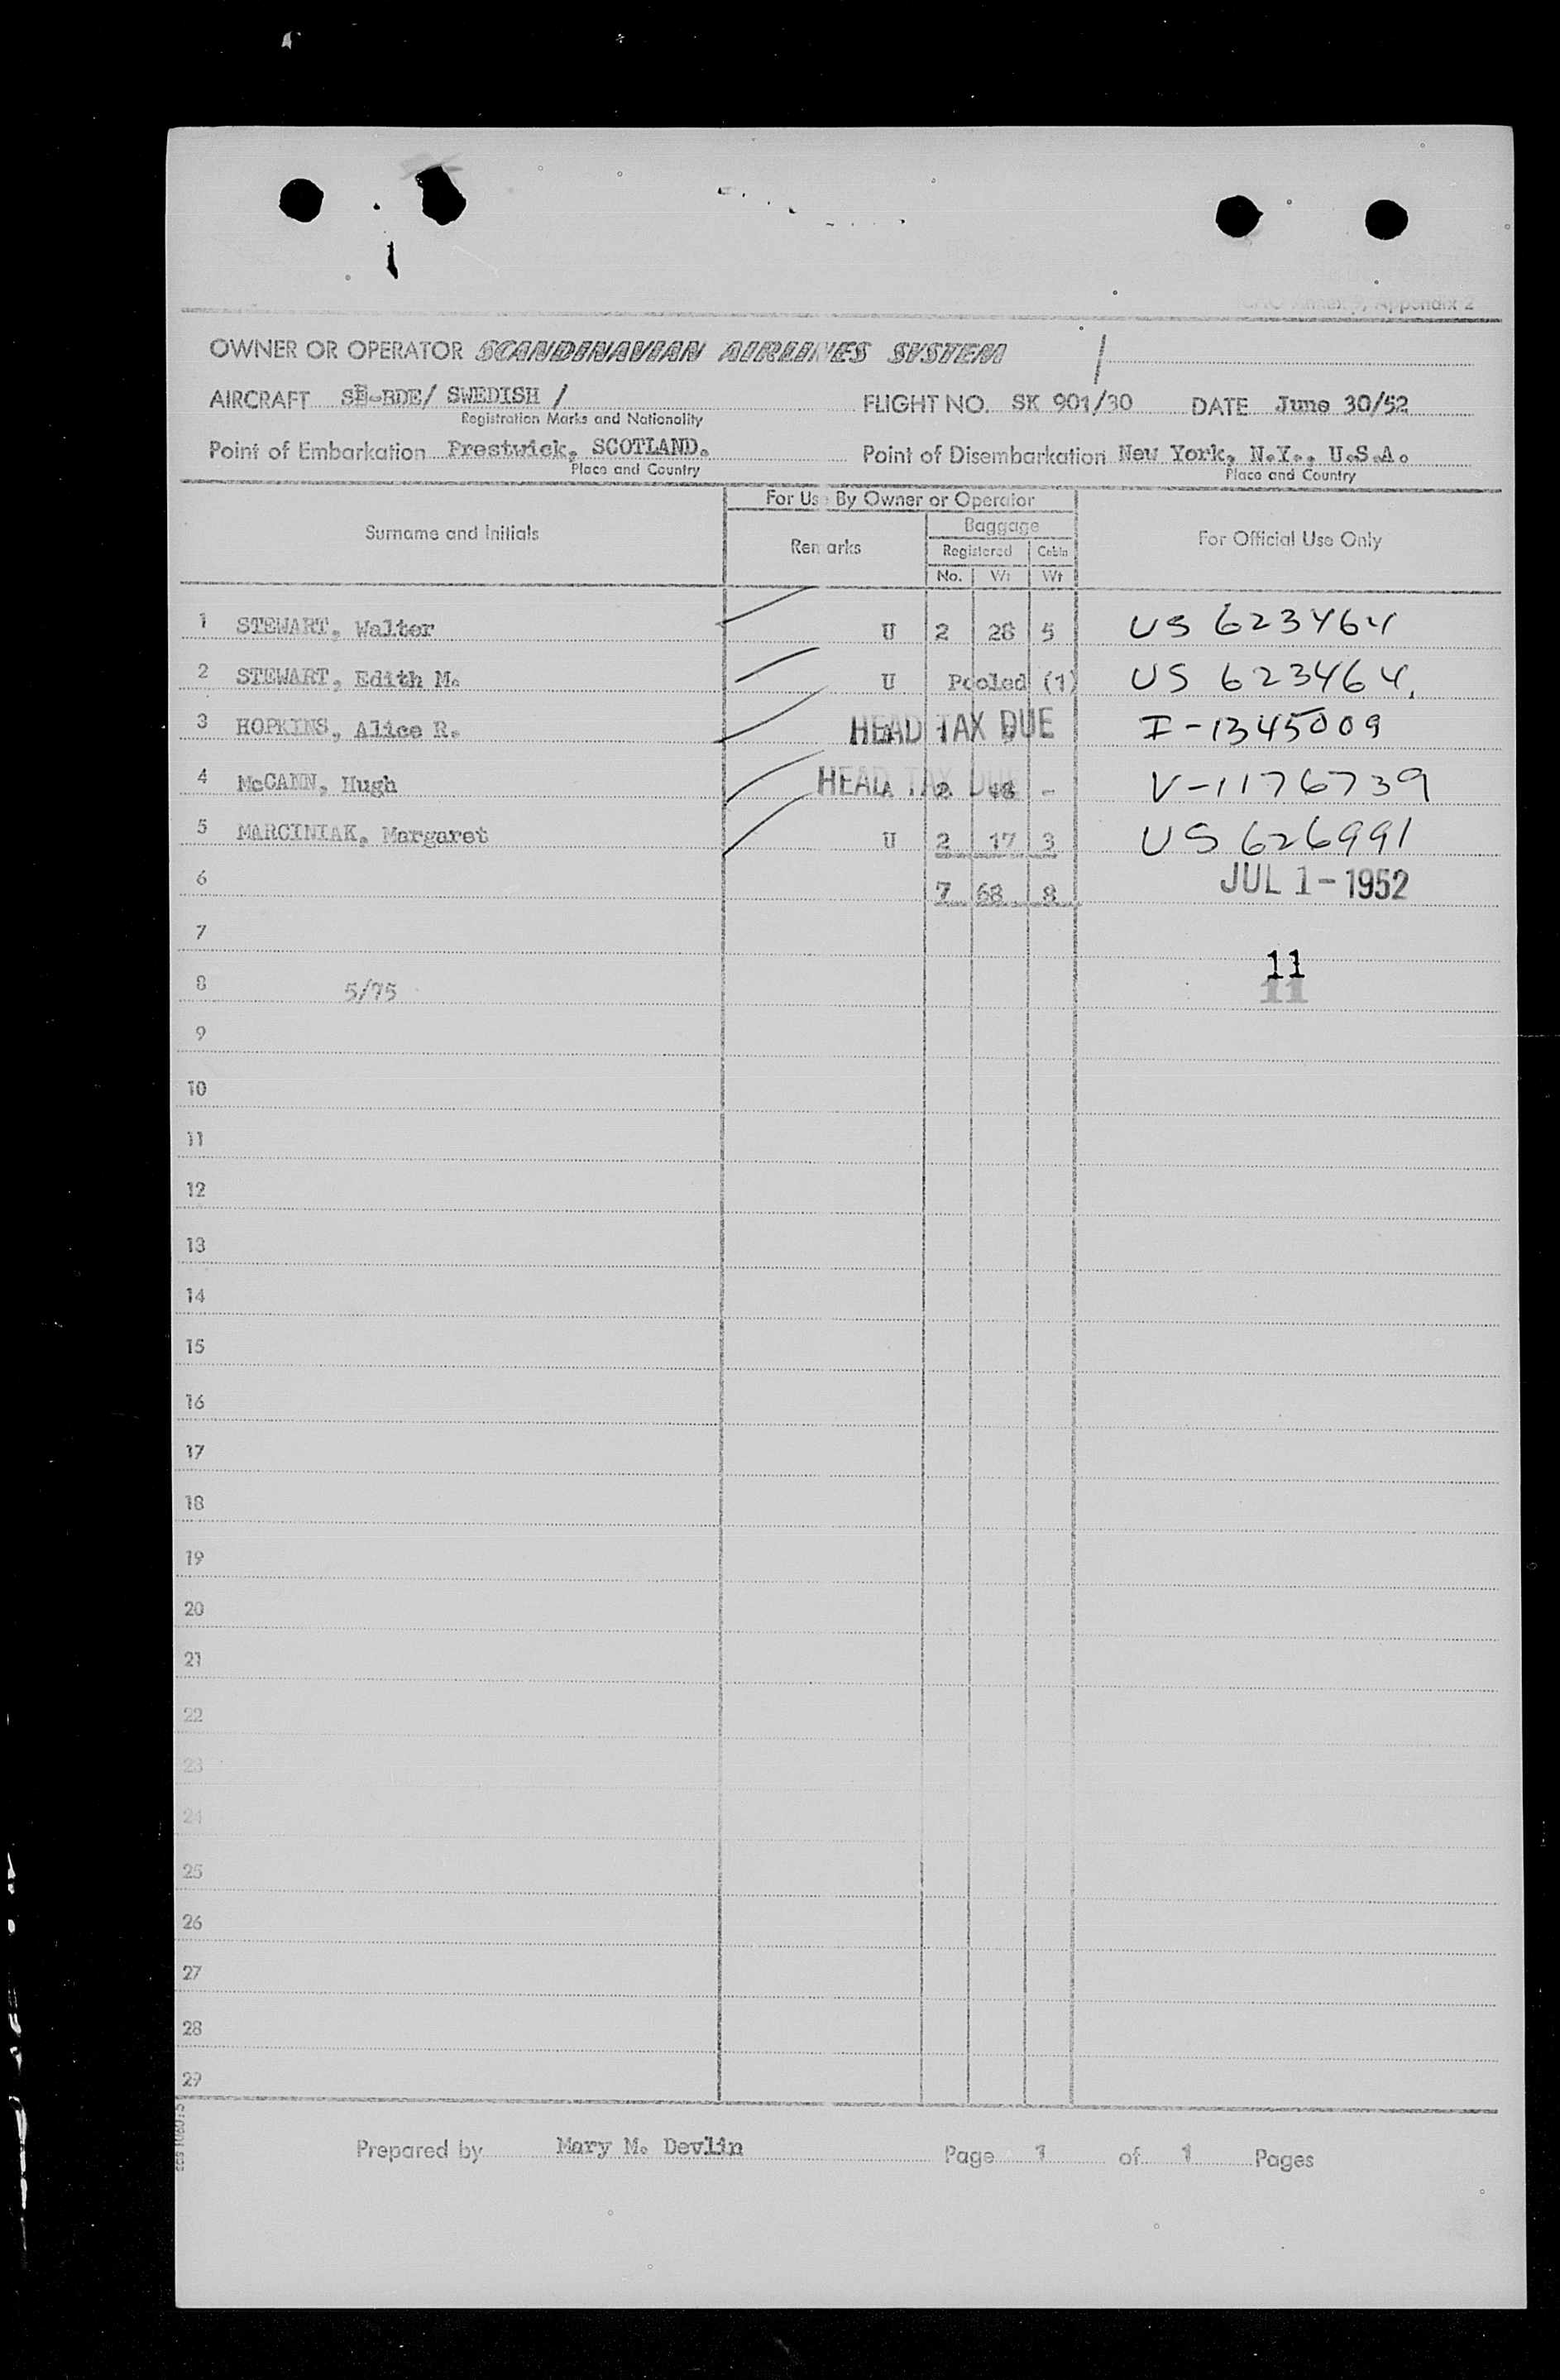 Appendix 2
OWNER OR OPERATOR SCANDINAVIAN AIRLINES SYSTEM
AIRCRAFT SE-BDE/ SWEDISH /
Registration Marks and Nationality
FLIGHT NO. SK 901/30 DATE June 30/52
Point of Embarkation Prestwick, SCOTLAND.
Place and Country
Point of Disembarkation New York, N.Y., U.S.A.
Place and Country
For Use By Owner or Operator
Surname and Initials Remarks Baggage For Official Use Only
Registered Cabin
No. Wt Wt
1 STEWART, Walter U 2 28 5 US 623464
2 STEWART, Edith M. U Pooled (1) US 623464.
3 HOPKINS, Alice R. HEAD TAX DUE I-1345009
4 McCANN, Hugh HEAD TAX DUE 2 - V-1176739
5 MARCINIAK, Margaret U 2 17 3 US 626991
6 7 68 8 JUL 1-1952
7
11
8 5/75 11
9
10
11
12
13
14
15
16
17
18
19
20
21
22
23
24
25
26
27
28
29
Prepared by Mary M. Devlin Page 1 of 1 Pages